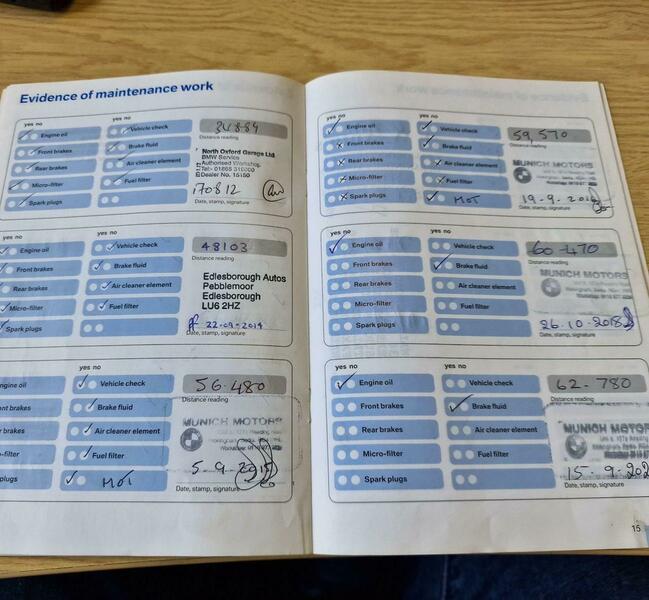 Evidence of maintenance work
yes no
Engine oil
Vehicle check
34884
Distance reading
Front brakes
Brake fluid
North Oxford Garage Ltd
BMW Service
Authorised Workshop
Rear brakes
Air cleaner element
Tel:- 01865
Dealer No. 15150
Micro-filter
Fuel filter
170812
Spark plugs
Date, stamp, signature
yes no
Engine oil
Vehicle check
48103
Distance reading
Front brakes
Brake fluid
Edlesborough Autos
Pebblemoor
Rear brakes
Air cleaner element
Edlesborough
LU6 2HZ
Micro-filter
Fuel filter
22-09-2014
Spark plugs
Date, stamp, signature
yes no
ngine oil
Vehicle check
56.480
Distance reading
nt brakes
Brake fluid
MUNICH MOTORS
r brakes
Air cleaner element
o-filter
Fuel filter
5-9-2015
plugs
MOT
Date, stamp, signature
yes no
yes no
Engine oil
Vehicle check
59,570
Distance reading
Front brakes
Brake fluid
MUNICH MOTORS
Rear brakes
Air cleaner element
Micro-filter
Fuel filter
19-9-2016
Spark plugs
MOT
Date, stamp, signature
yes no
yes no
Engine oil
Vehicle check
60-470
Distance reading
Front brakes
Brake fluid
MUNICH MOTORS
Rear brakes
Air cleaner element
Micro-filter
Fuel filter
26.10-2018
Spark plugs
Date, stamp, signature
yes no
yes no
Engine oil
Vehicle check
62-780
Distance reading
Front brakes
Brake fluid
MUNICH MOTOR
Rear brakes
Air cleaner element
Micro-filter
Fuel filter
15-9-202
Spark plugs
Date, stamp, signature
15